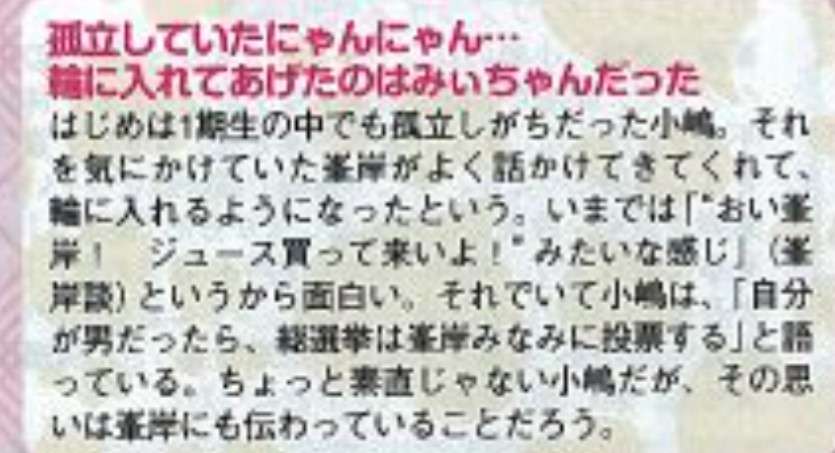 孤立していたにゃんにゃん…
輪に入れてあげたのはみぃちゃんだった
はじめは1期生の中でも孤立しがちだった小嶋。それ
を気にかけていた峯岸がよく話かけてきてくれて、
輪に入れるようになったという。いまでは「“おい峯
岸！　ジュース買って来いよ！”みたいな感じ」（峯
岸談）というから面白い。それでいて小嶋は、「自分
が男だったら、総選挙は峯岸みなみに投票する」と語
っている。ちょっと素直じゃない小嶋だが、その思
いは峯岸にも伝わっていることだろう。